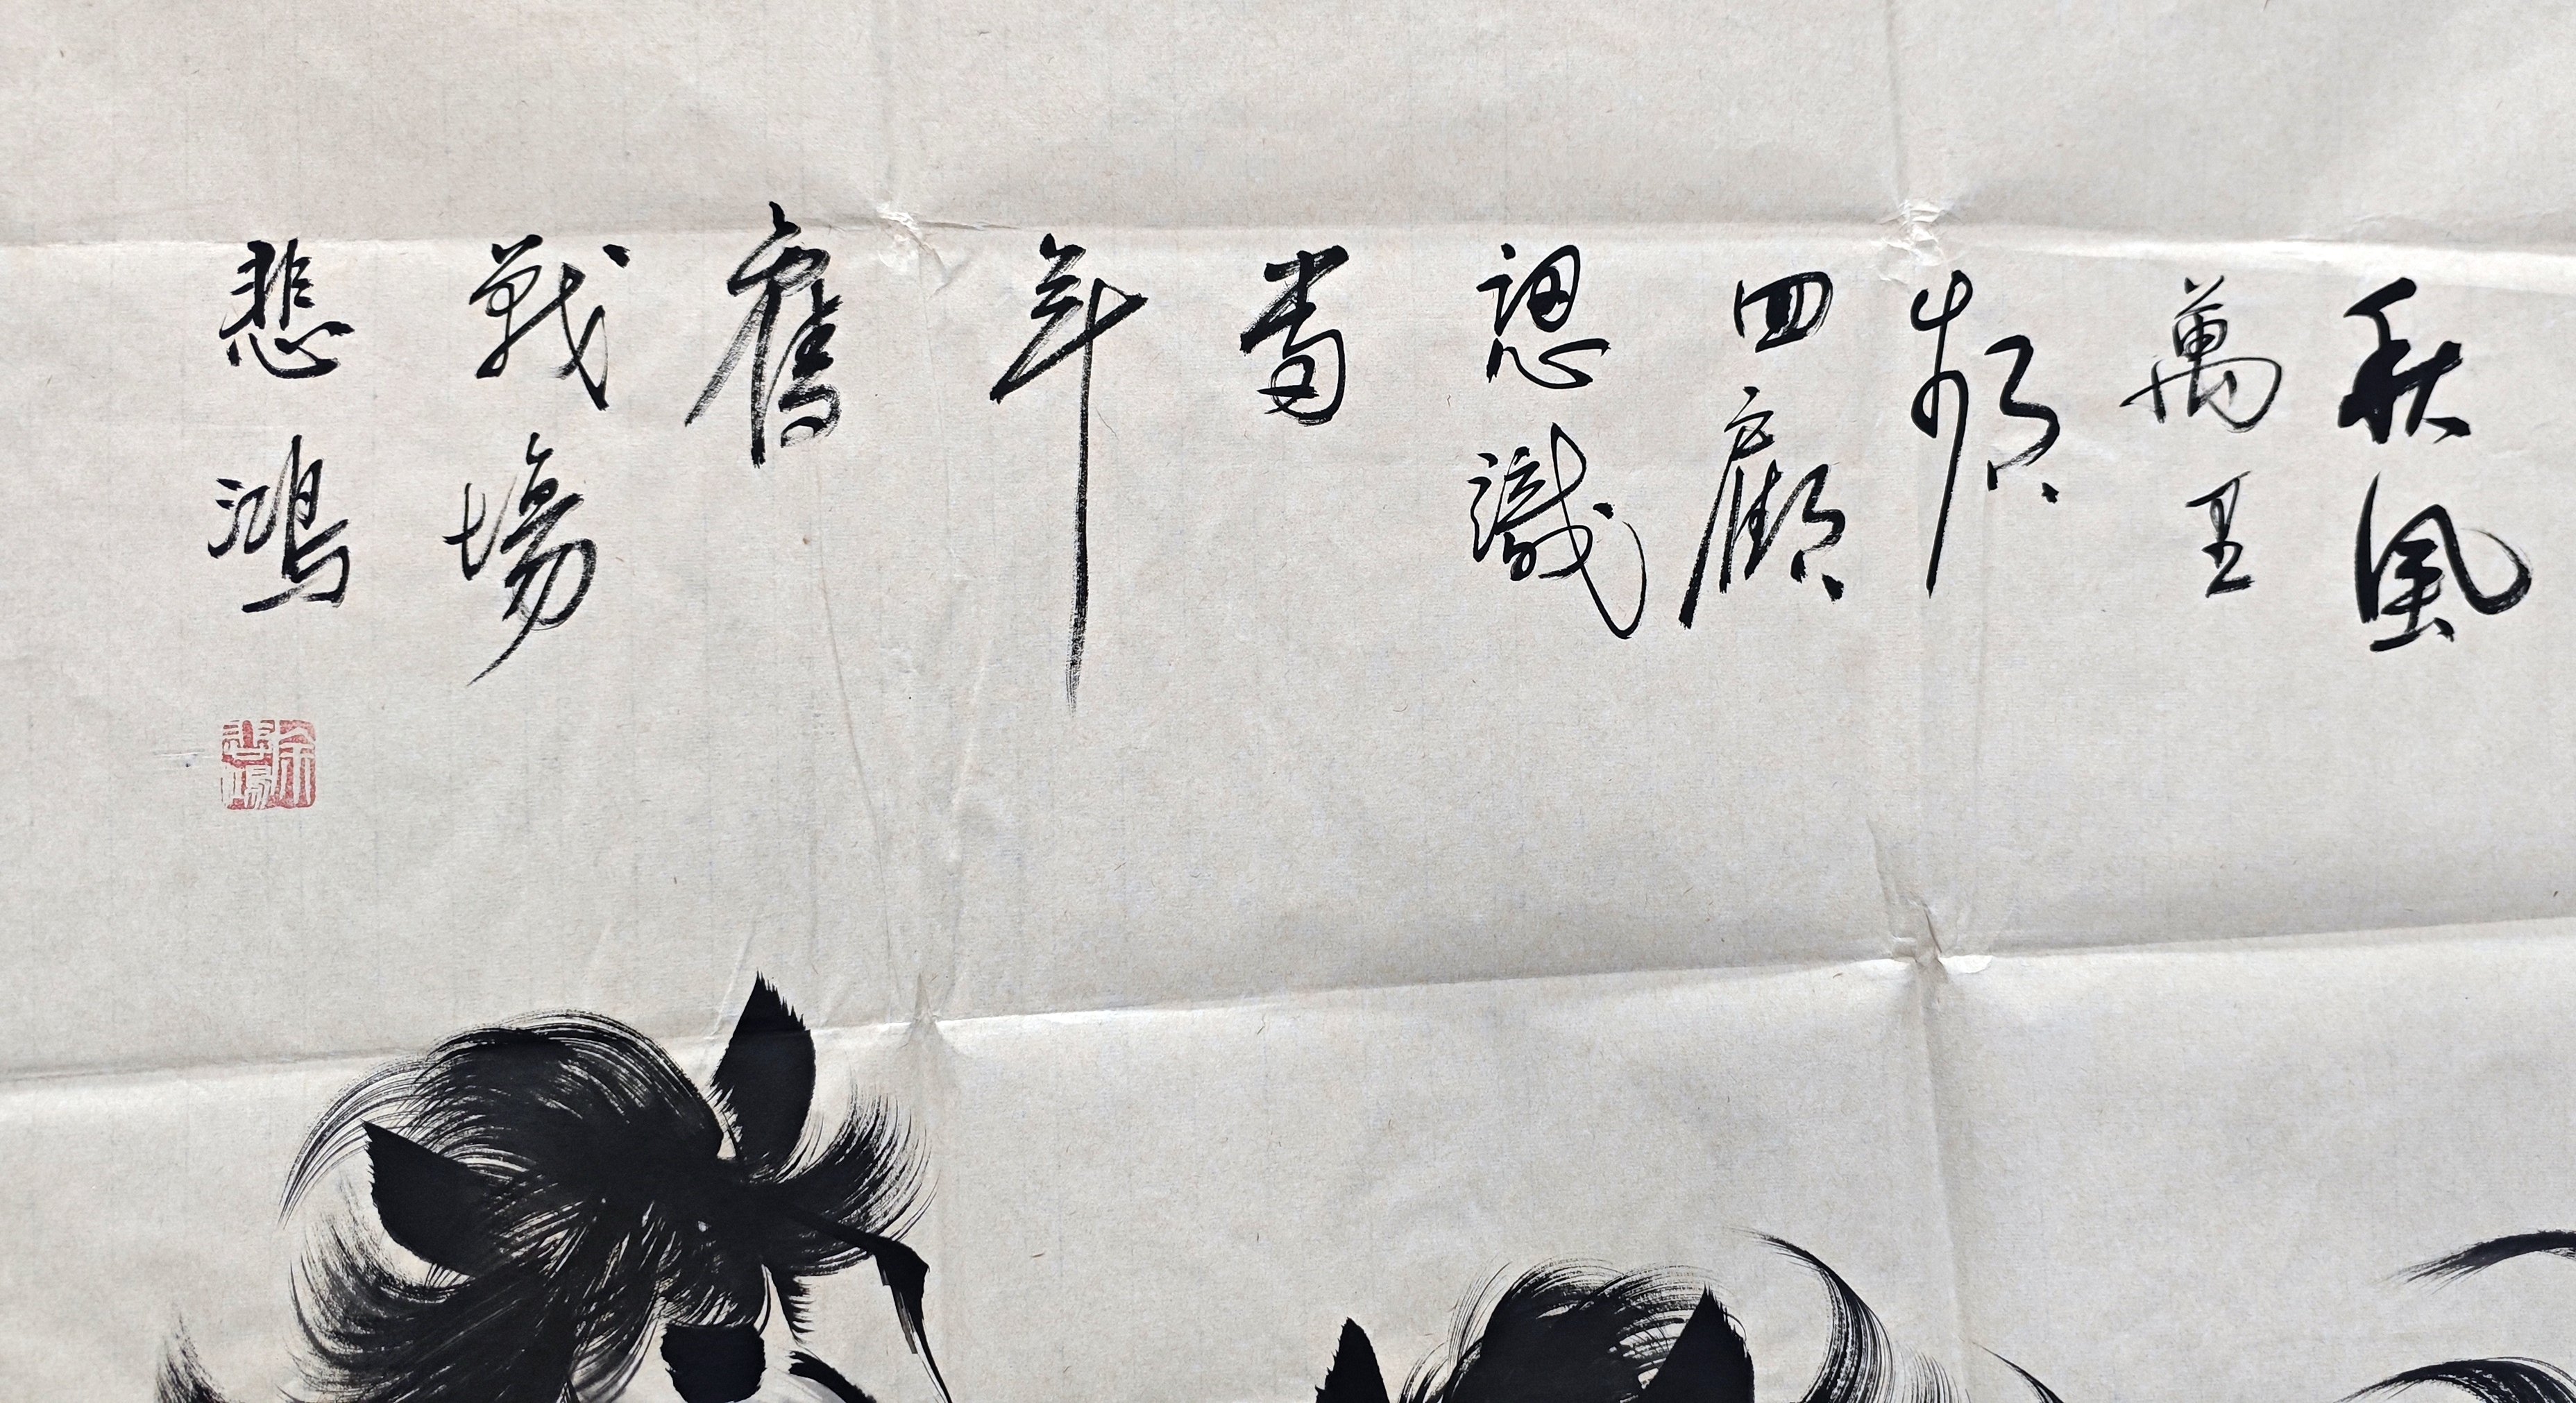 秋風
萬里
頻
四顧
認識
當
年
舊
戰場
悲鴻
徐悲鴻